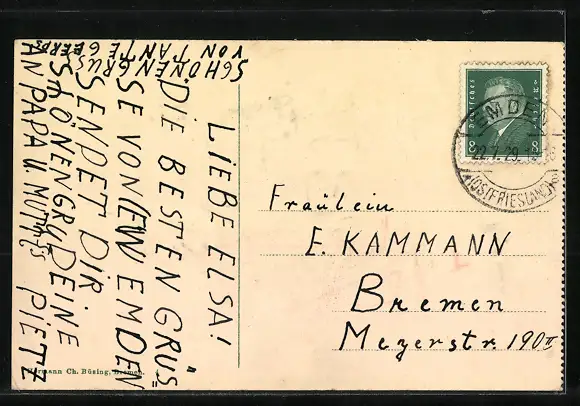 LIEBE ELSA!
DIE BESTEN GRÜS=
SE VON EMDEN
SENDET DIR
DEINE
PIETZ
SCHÖNEN GRUSS
AN PAPA U. MUTTI
SCHÖNEN GRUSS
VON TANTE GEERDS
Fräulein
E. KAMMANN
Bremen
Meyerstr. 190 II
DEUTSCHES REICH
8 8
EMDEN
22.7.29.
(OSTFRIESLAND)
Hermann Ch. Büsing, Bremen.